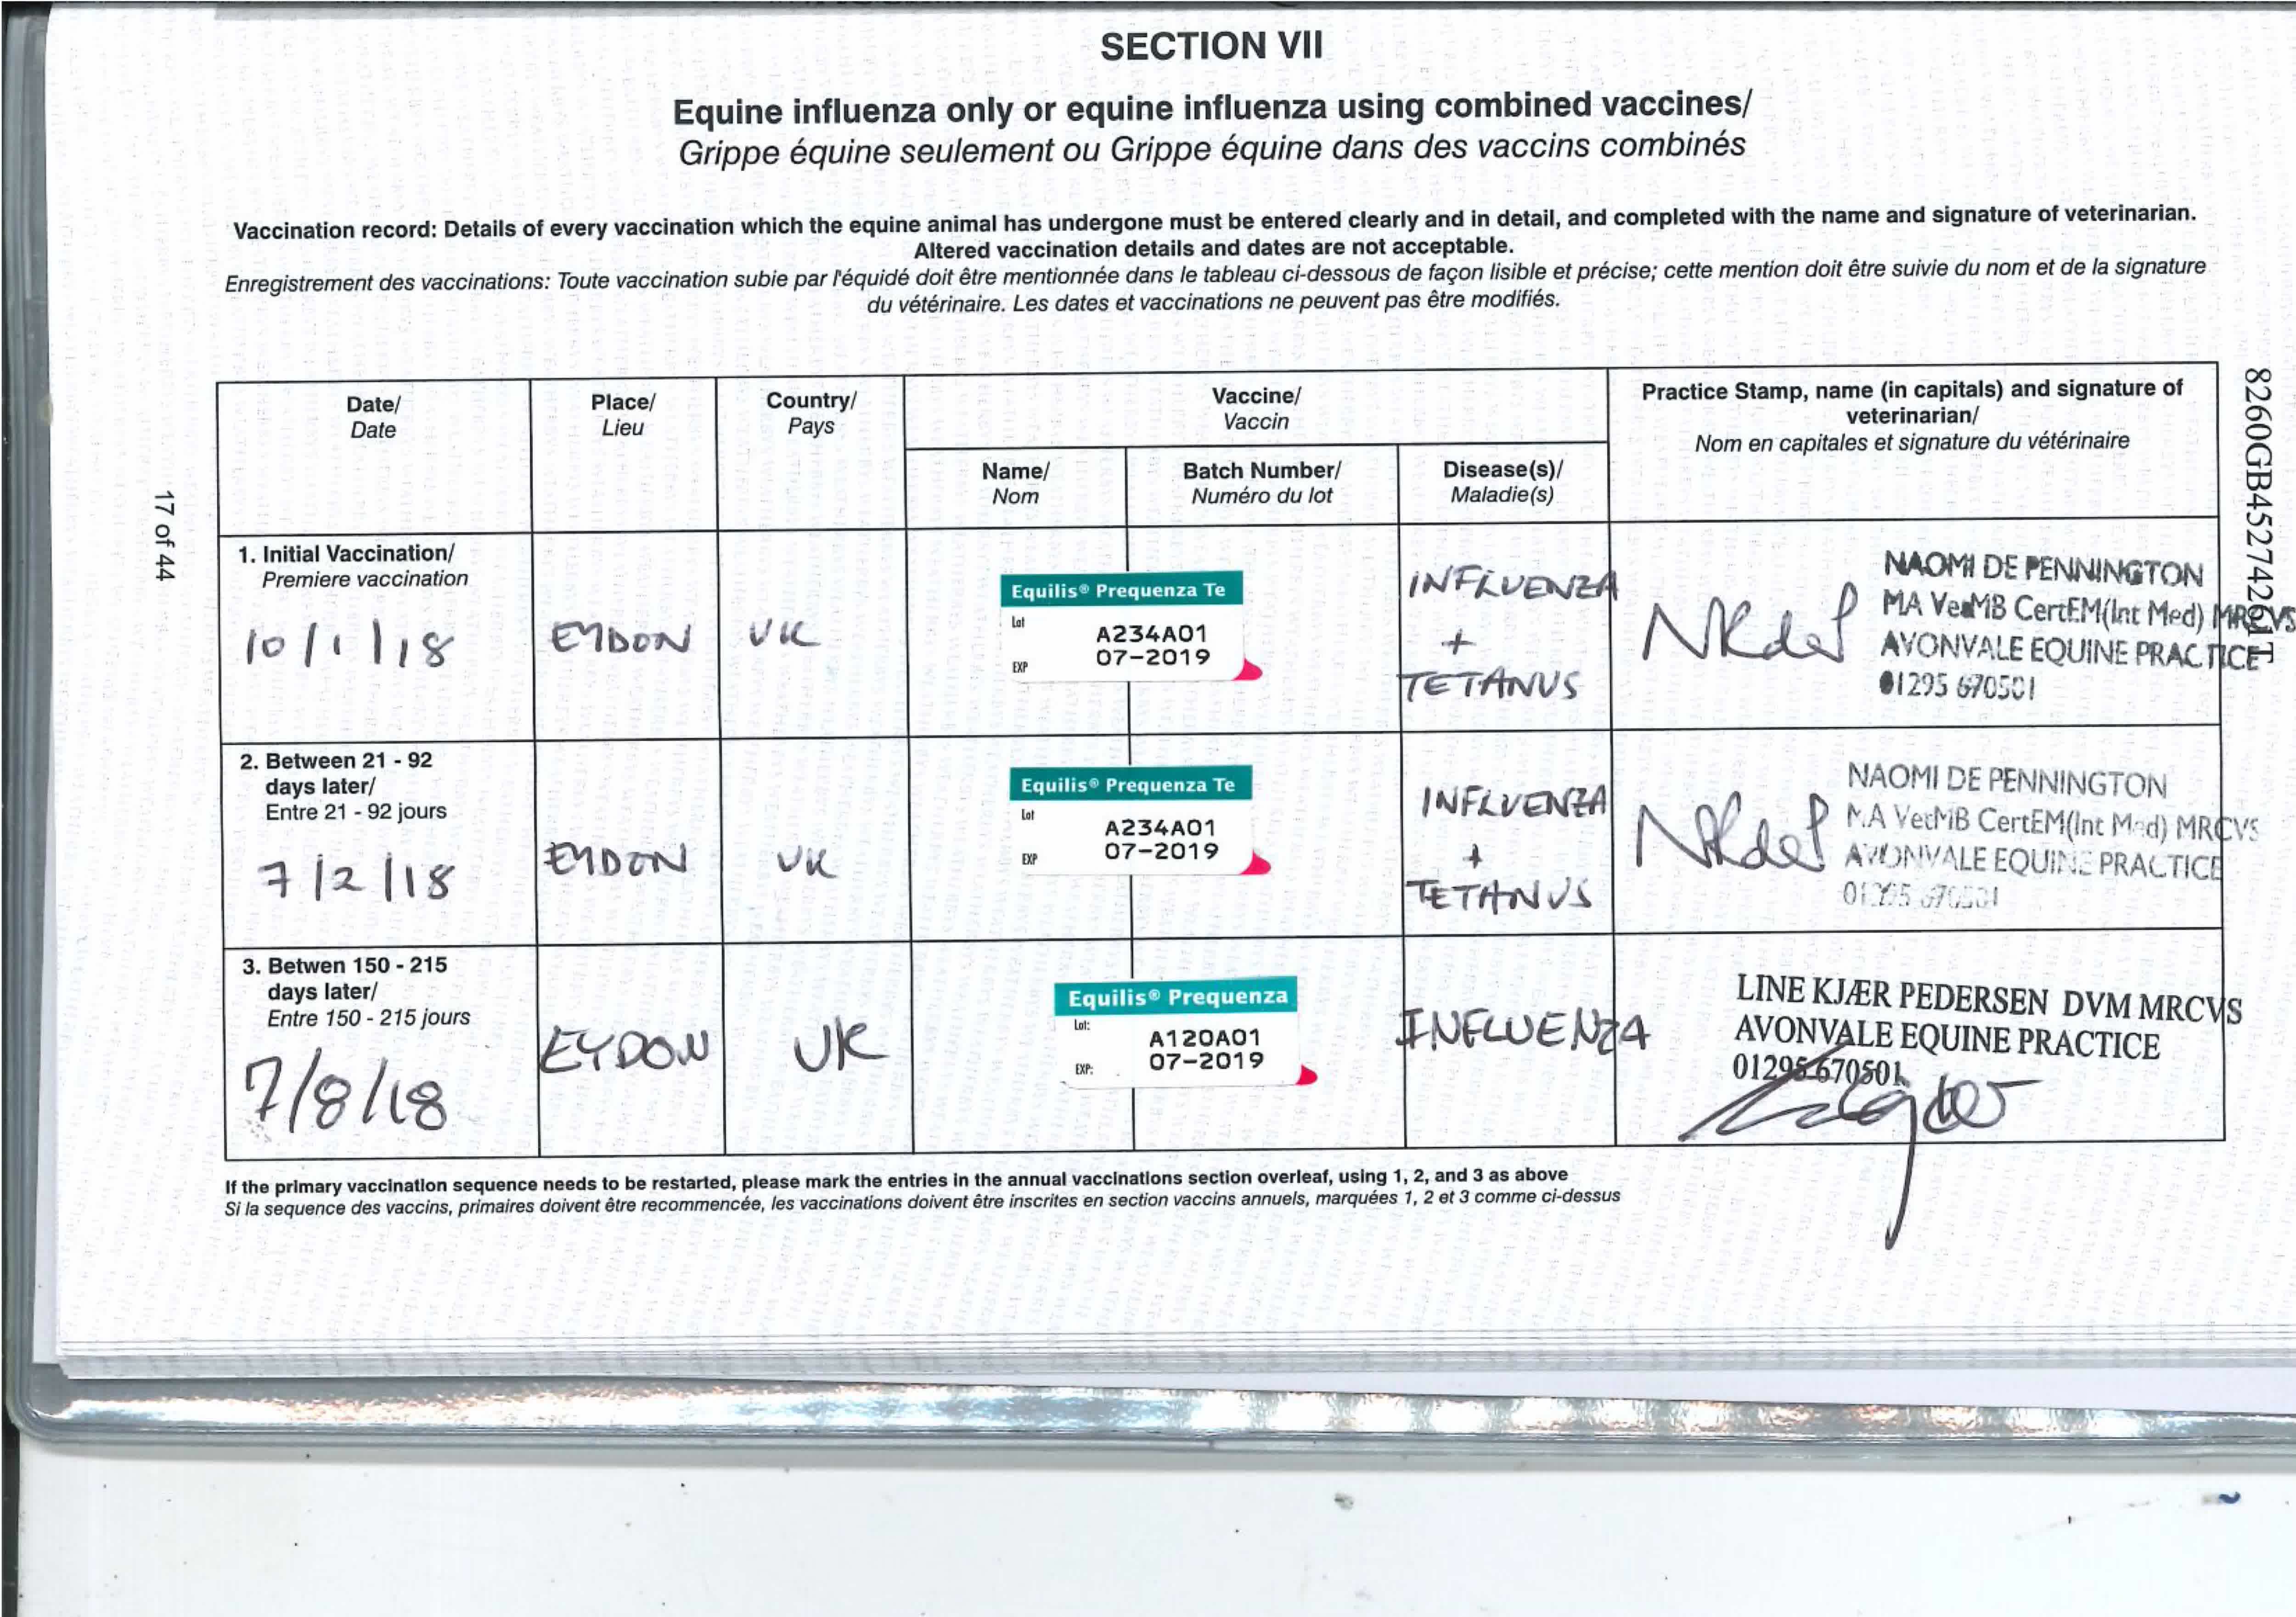 SECTION VII
Equine influenza only or equine influenza using combined vaccines/
Grippe équine seulement ou Grippe équine dans des vaccins combinés
Vaccination record: Details of every vaccination which the equine animal has undergone must be entered clearly and in detail, and completed with the name and signature of veterinarian.
Altered vaccination details and dates are not acceptable.
Enregistrement des vaccinations: Toute vaccination subie par l'équidé doit être mentionnée dans le tableau ci-dessous de façon lisible et précise; cette mention doit être suivie du nom et de la signature
du vétérinaire. Les dates et vaccinations ne peuvent pas être modifiés.
17 of 44
Date/
Date
Place/
Lieu
Country/
Pays
Vaccine/
Vaccin
Name/
Nom
Batch Number/
Numéro du lot
Disease(s)/
Maladie(s)
Practice Stamp, name (in capitals) and signature of
veterinarian/
Nom en capitales et signature du vétérinaire
8260GB45274261IT
1. Initial Vaccination/
Premiere vaccination
10/1/18
EYDON
UK
Equilis® Prequenza Te
Lot
A234A01
EXP
07-2019
INFLUENZA
+
TETANUS
NAOMI DE PENNINGTON
MA VetMB CertEM(Int Med) MRCVS
AVONVALE EQUINE PRACTICE
01295 670501
2. Between 21 - 92
days later/
Entre 21 - 92 jours
7/2/18
EYDON
UK
Equilis® Prequenza Te
Lot
A234A01
EXP
07-2019
INFLUENZA
+
TETANUS
NAOMI DE PENNINGTON
MA VetMB CertEM(Int Med) MRCVS
AVONVALE EQUINE PRACTICE
01295 670501
3. Betwen 150 - 215
days later/
Entre 150 - 215 jours
7/8/18
EYDON
UK
Equilis® Prequenza
Lot:
A120A01
EXP:
07-2019
INFLUENZA
LINE KJÆR PEDERSEN DVM MRCVS
AVONVALE EQUINE PRACTICE
01295 670501
If the primary vaccination sequence needs to be restarted, please mark the entries in the annual vaccinations section overleaf, using 1, 2, and 3 as above
Si la sequence des vaccins, primaires doivent être recommencée, les vaccinations doivent être inscrites en section vaccins annuels, marquées 1, 2 et 3 comme ci-dessus